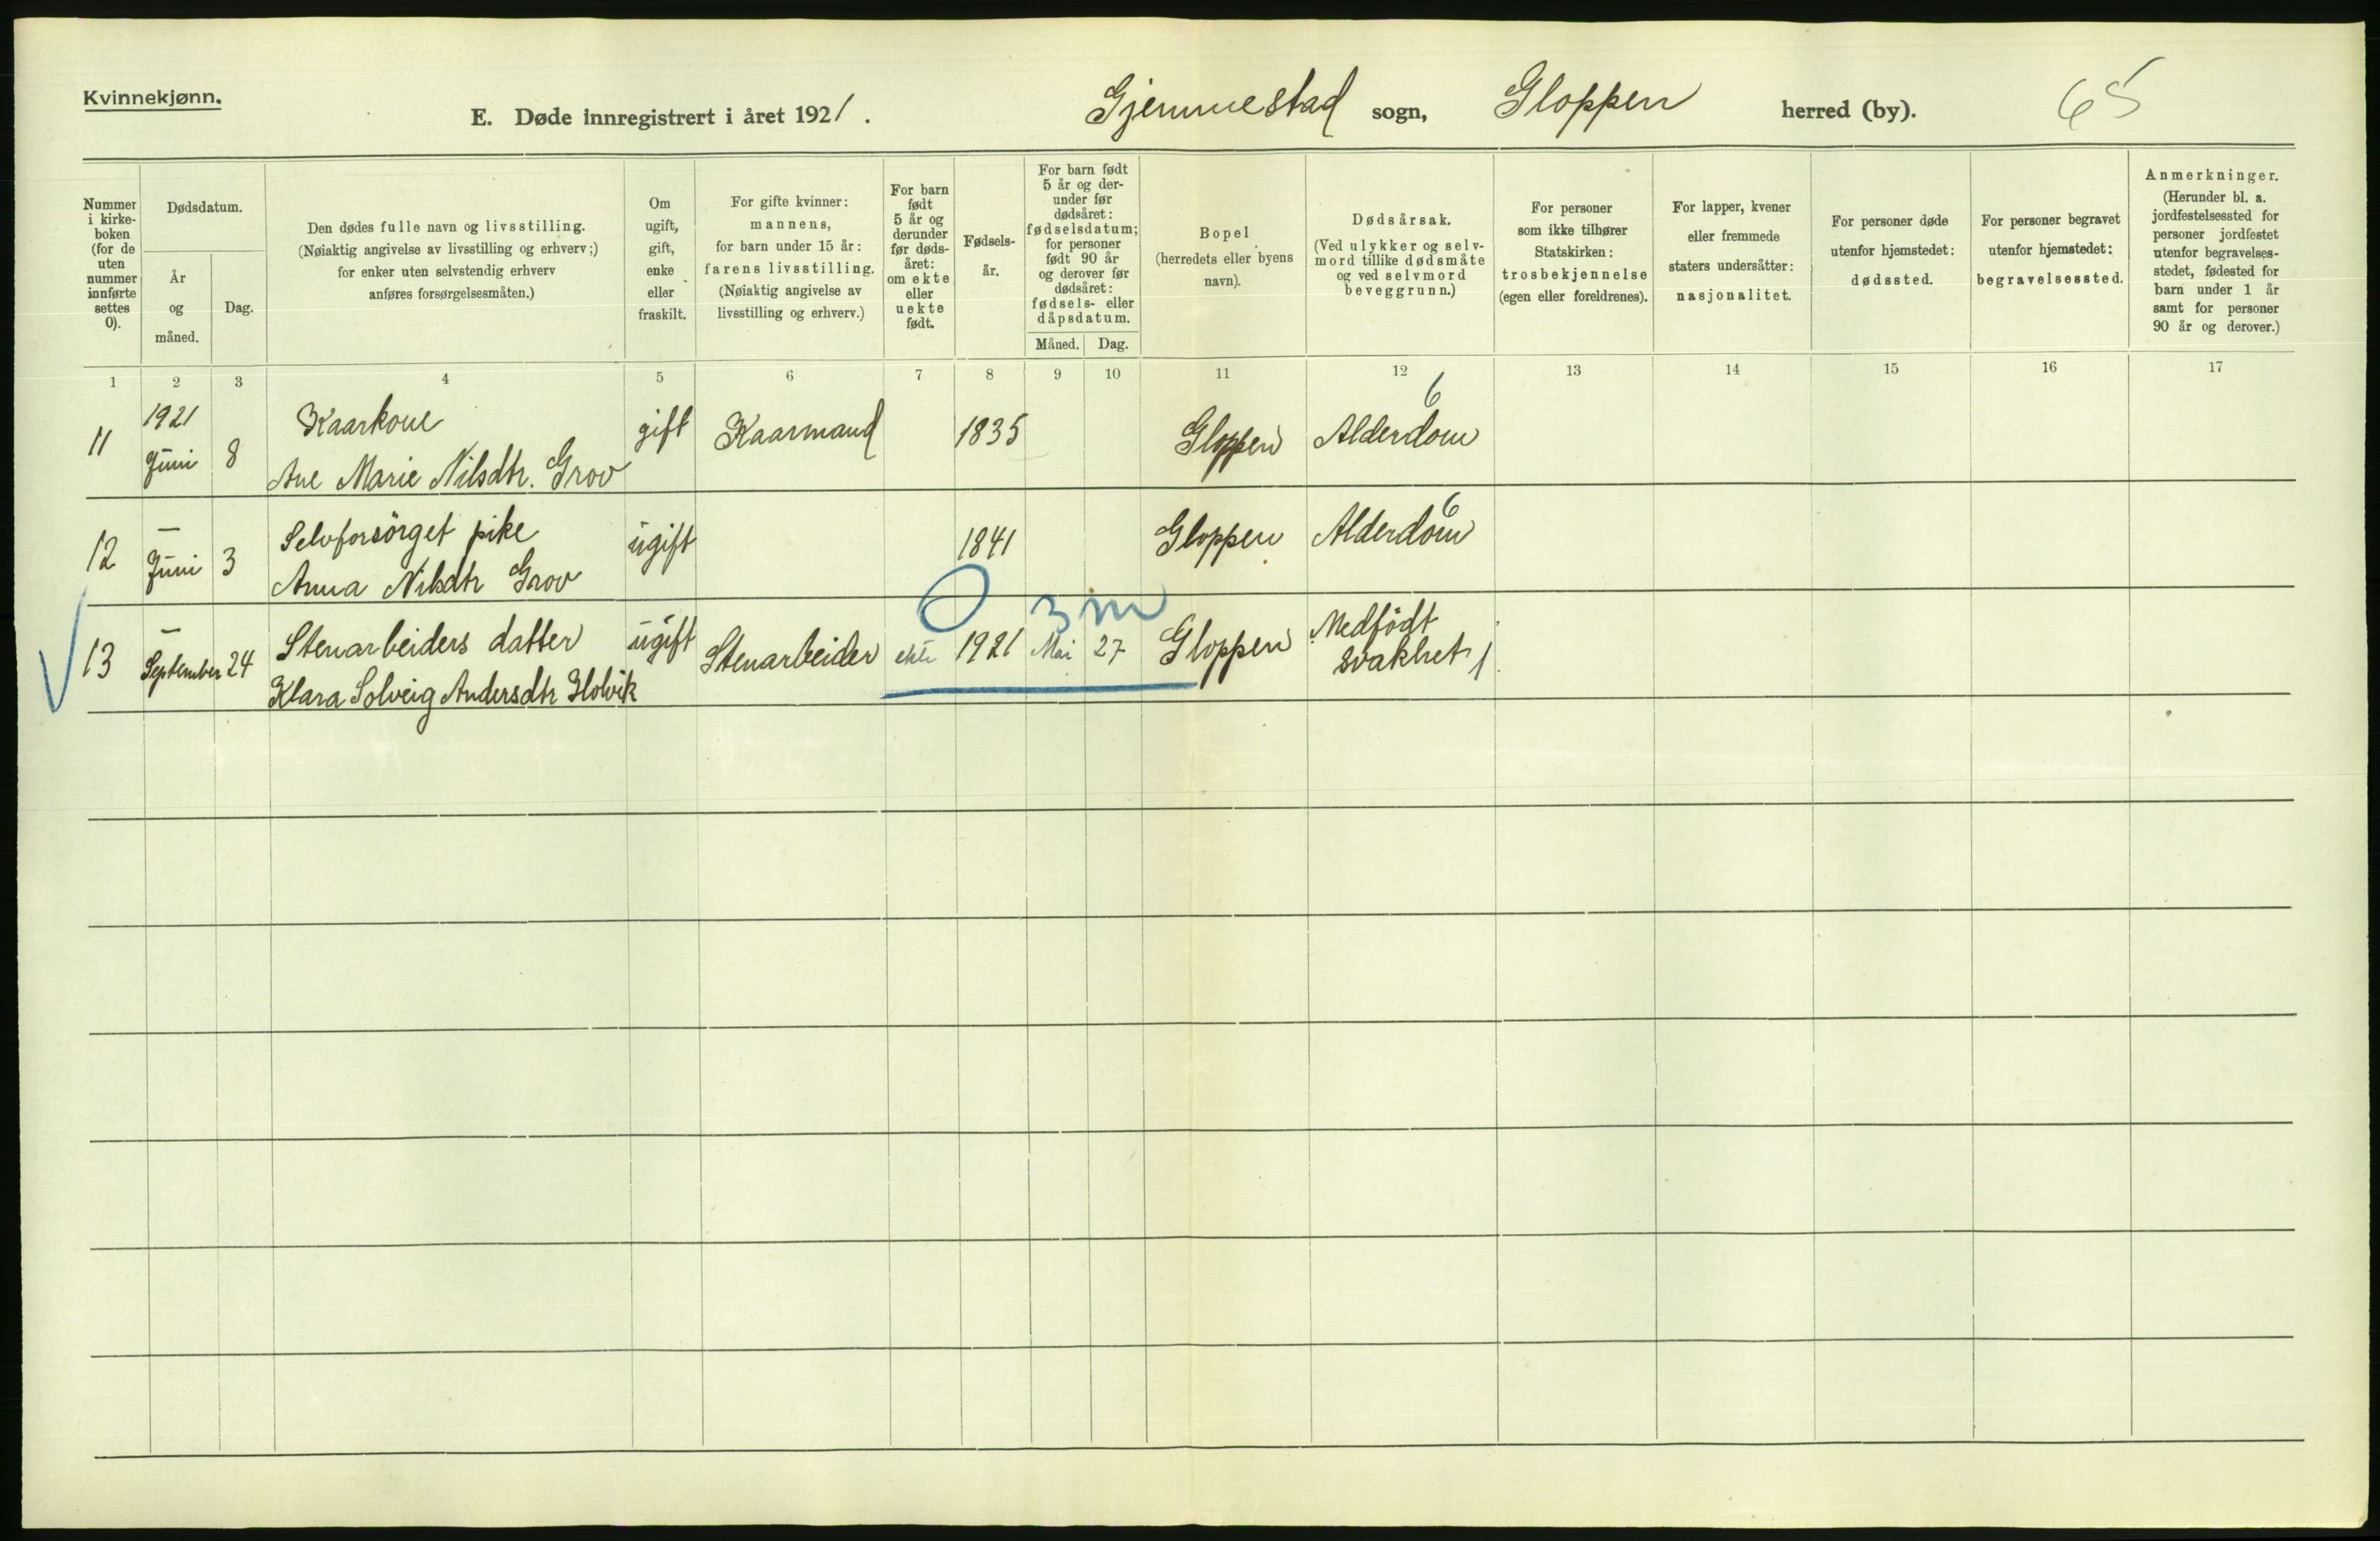 Kvinnekjønn.
E. Døde innregistrert i året 1921. Gjemmestad sogn, Gloppen herred (by). 65
Nummer i kirkeboken (for de uten nummer innførte settes 0).
Dødsdatum.
År og måned.
Dag.
Den dødes fulle navn og livsstilling.
(Nøiaktig angivelse av livsstilling og erhverv;)
for enker uten selvstendig erhverv
anføres forsørgelsesmåten.)
Om ugift, gift, enke eller fraskilt.
For gifte kvinner:
mannens,
for barn under 15 år:
farens livsstilling.
(Nøiaktig angivelse av
livsstilling og erhverv.)
For barn
født
5 år og
derunder
før døds-
året:
om ekte
eller
uekte
født.
Fødsels-
år.
For barn født
5 år og der-
under før
dødsåret:
fødselsdatum;
for personer
født 90 år
og derover før
dødsåret:
fødsels- eller
dåpsdatum.
Måned. Dag.
Bopel
(herredets eller byens
navn).
Dødsårsak.
(Ved ulykker og selv-
mord tillike dødsmåte
og ved selvmord
beveggrunn.)
For personer
som ikke tilhører
Statskirken:
trosbekjennelse
(egen eller foreldrenes).
For lapper, kvener
eller fremmede
staters undersåtter:
nasjonalitet.
For personer døde
utenfor hjemstedet:
dødssted.
For personer begravet
utenfor hjemstedet:
begravelsessted.
Anmerkninger.
(Herunder bl. a.
jordfestelsessted for
personer jordfestet
utenfor begravelses-
stedet, fødested for
barn under 1 år
samt for personer
90 år og derover.)
1 2 3 4 5 6 7 8 9 10 11 12 13 14 15 16 17
11 1921 Juni 8 Kaarkone gift Kaarmand 1835 Gloppen Alderdom 6
Ane Marie Nilsdtr. Grov
12 — Juni 3 Selvforsörget pike ugift 1841 Gloppen Alderdom 6
Anna Nilsdtr Grov
0 3 m
13 — September 24 Stenarbeiders datter ugift Stenarbeider ekte 1921 Mai 27 Gloppen Medfödt
svakhet 1
Klara Solveig Andersdtr Holvik